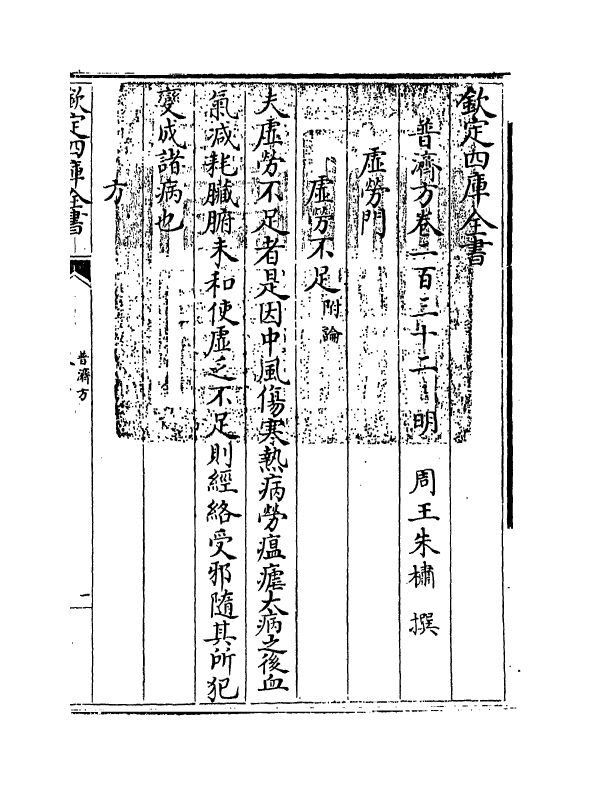 欽定四庫全書
普濟方卷二百三十二 明 周王朱橚 撰
虛勞門
虛勞不足附論
夫虛勞不足者是因中風傷寒熱病勞瘟瘧大病之後血
氣減耗臟腑未和使虛乏不足則經絡受邪隨其所犯
變成諸病也
方
欽定四庫全書
普濟方